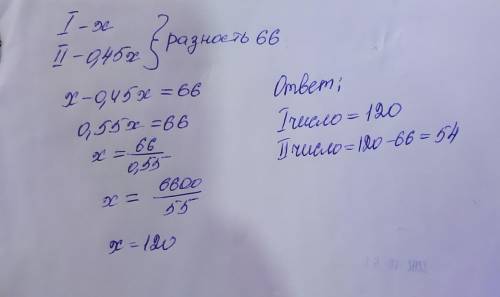 I - x
II - 0,45x } разность 66
x - 0,45x = 66
0,55x = 66
x = 66/0,55
x = 6600/55
x = 120
Ответ:
I число = 120
II число = 120 - 66 = 54